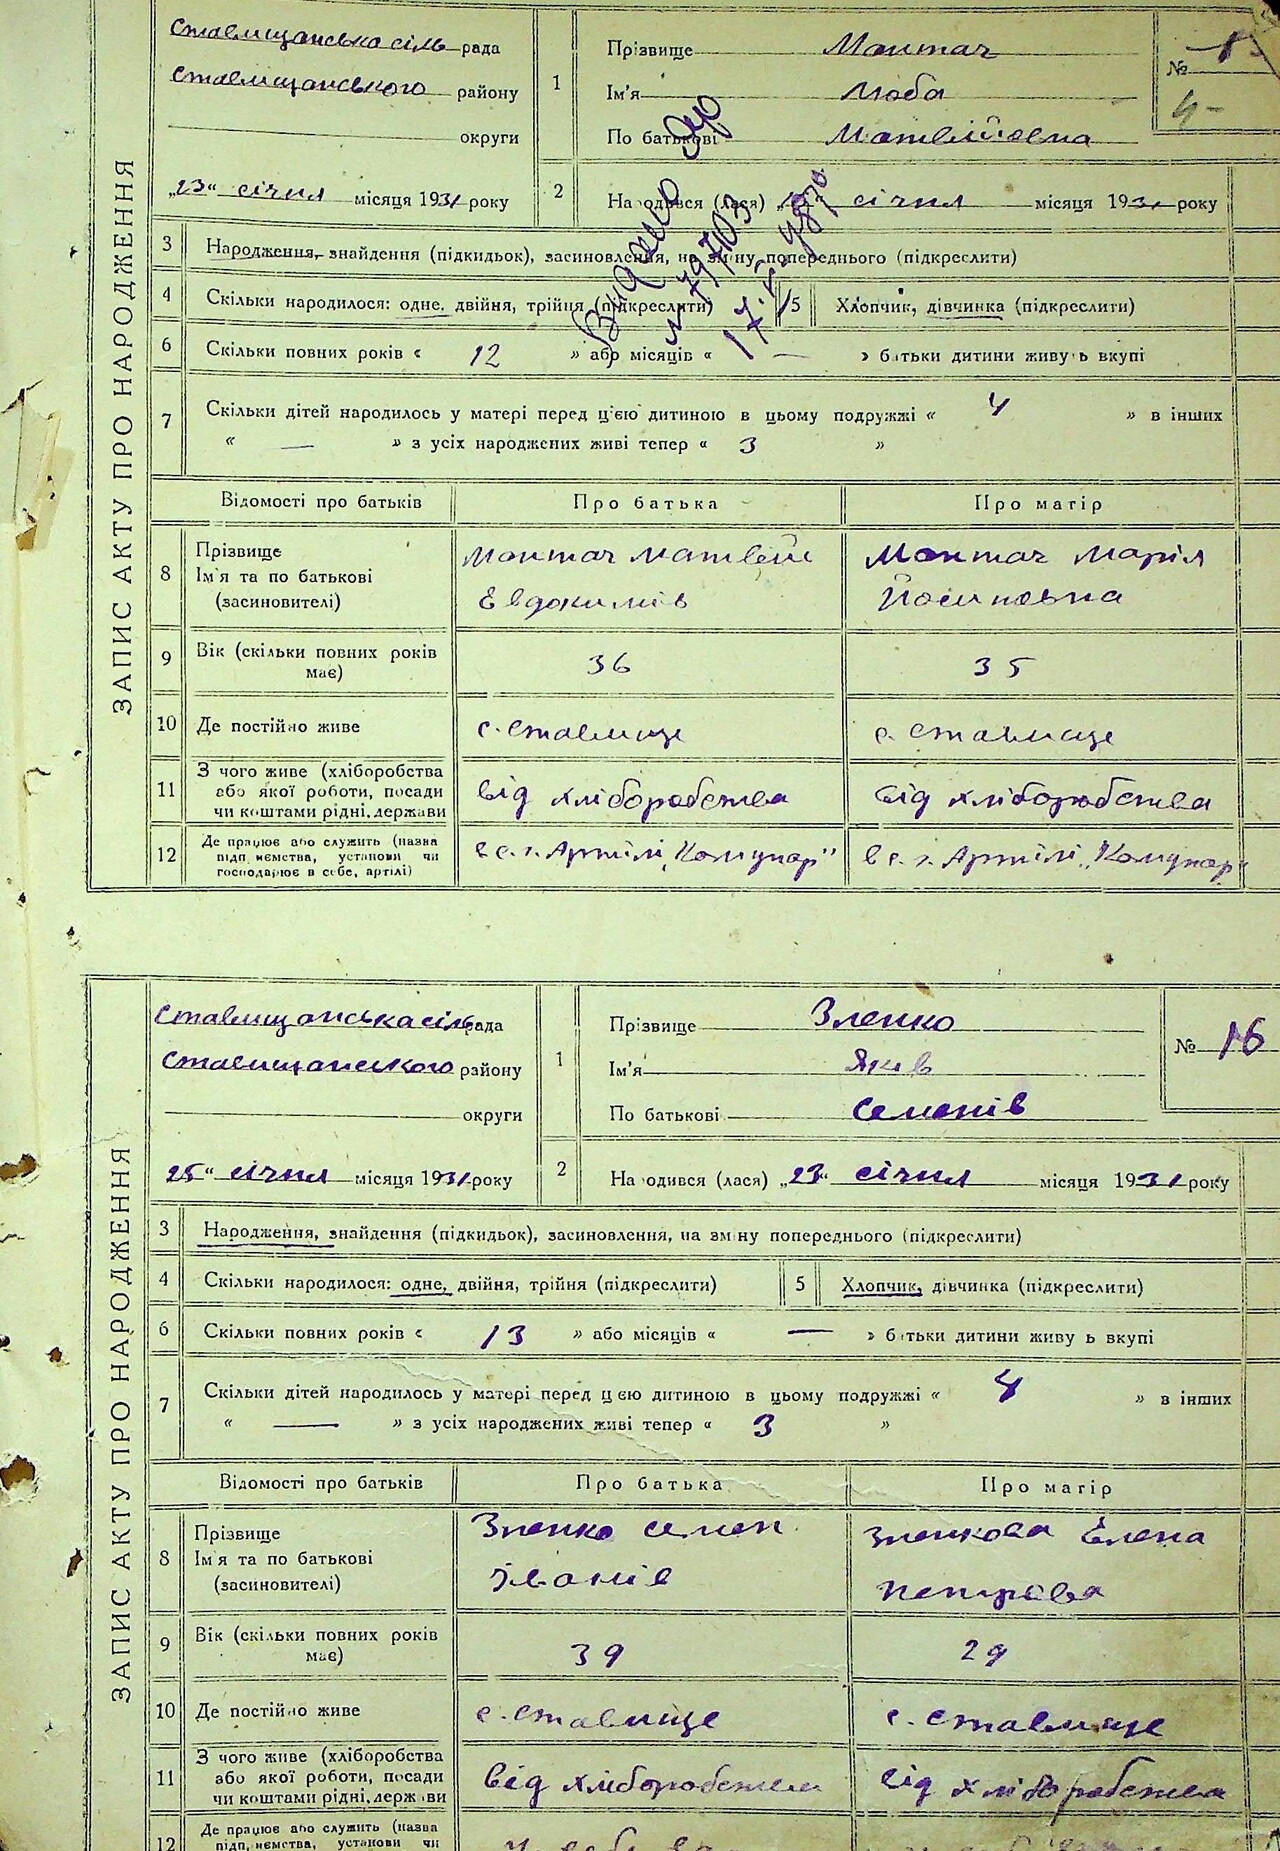 ЗАПИС АКТУ ПРО НАРОДЖЕННЯ
Ставищанська сіль рада
Ставищанського району
округи
„23“ січня місяця 1931 року
1
Прізвище Монтач
Ім'я Люба
По батькові Матвійовна
№
4-
2
Народився (лася) січня місяця 1931 року
Видано дур
№ 797103
3 Народження, знайдення (підкидьок), засиновлення, на зміну попереднього (підкреслити)
4 Скільки народилося: одне, двійня, трійня (підкреслити) 5 Хлопчик, дівчинка (підкреслити)
6 Скільки повних років « 12 » або місяців « — » батьки дитини живуть вкупі
7 Скільки дітей народилось у матері перед цією дитиною в цьому подружжі « 4 » в інших
« — » з усіх народжених живі тепер « 3 »
Відомості про батьків Про батька Про матір
8 Прізвище Ім'я та по батькові (засиновителі)
Монтач Матвей
Евдокимів
Монтач Марія
Йосиповна
9 Вік (скільки повних років має) 36 35
10 Де постійно живе с. Ставище с. Ставище
11 З чого живе (хліборобства
або якої роботи, посади
чи коштами рідні, держави
від хліборобства від хліборобства
12 Де працює або служить (назва
підприємства, установи чи
господарює в себе, артілі)
в с. г. Артілі „Комунар" в с. г. Артілі „Комунар
ЗАПИС АКТУ ПРО НАРОДЖЕННЯ
Ставищанська сіль рада
Ставищанського району
округи
25“ січня місяця 1931 року
1
Прізвище Зленко
Ім'я Яків
По батькові Семенів
№ 16
2
Народився (лася) „23“ січня місяця 1931 року
3 Народження, знайдення (підкидьок), засиновлення, на зміну попереднього (підкреслити)
4 Скільки народилося: одне, двійня, трійня (підкреслити) 5 Хлопчик, дівчинка (підкреслити)
6 Скільки повних років « 13 » або місяців « — » батьки дитини живуть вкупі
7 Скільки дітей народилось у матері перед цією дитиною в цьому подружжі « 4 » в інших
« — » з усіх народжених живі тепер « 3 »
Відомості про батьків Про батька Про матір
8 Прізвище Ім'я та по батькові (засиновителі)
Зленко Семен
Іванів
Зленкова Елена
Петрова
9 Вік (скільки повних років має) 39 29
10 Де постійно живе с. Ставище с. Ставище
11 З чого живе (хліборобства
або якої роботи, посади
чи коштами рідні, держави
від хліборобства від хліборобства
12 Де працює або служить (назва
підприємства, установи чи